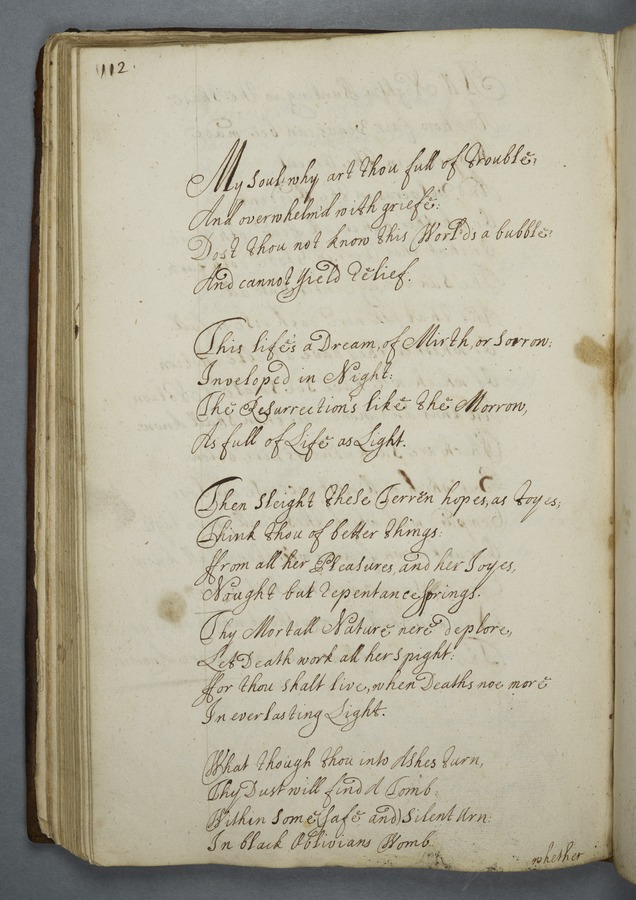 112.
My Soul why art thou full of trouble;
And overwhelmd with griefe:
Dost thou not know this World's a bubble:
And cannot yield relief.
This life's a Dream, of Mirth, or Sorrow:
Inveloped in Night:
The Resurrection's like the Morrow,
As full of Life as Light.
Then sleight these Terren hopes, as toyes;
Think thou of better things:
ffrom all her Pleasures, and her Joyes,
Nought but repentance springs.
Thy Mortall Nature nere deplore,
Let Death work all her spight:
ffor thou shalt live, when Deaths noe more
In everlasting Light.
What though thou into Ashes turn,
Thy Dust will find A Tomb:
Within some (safe and) silent Urn:
In black Oblivians Womb
whether